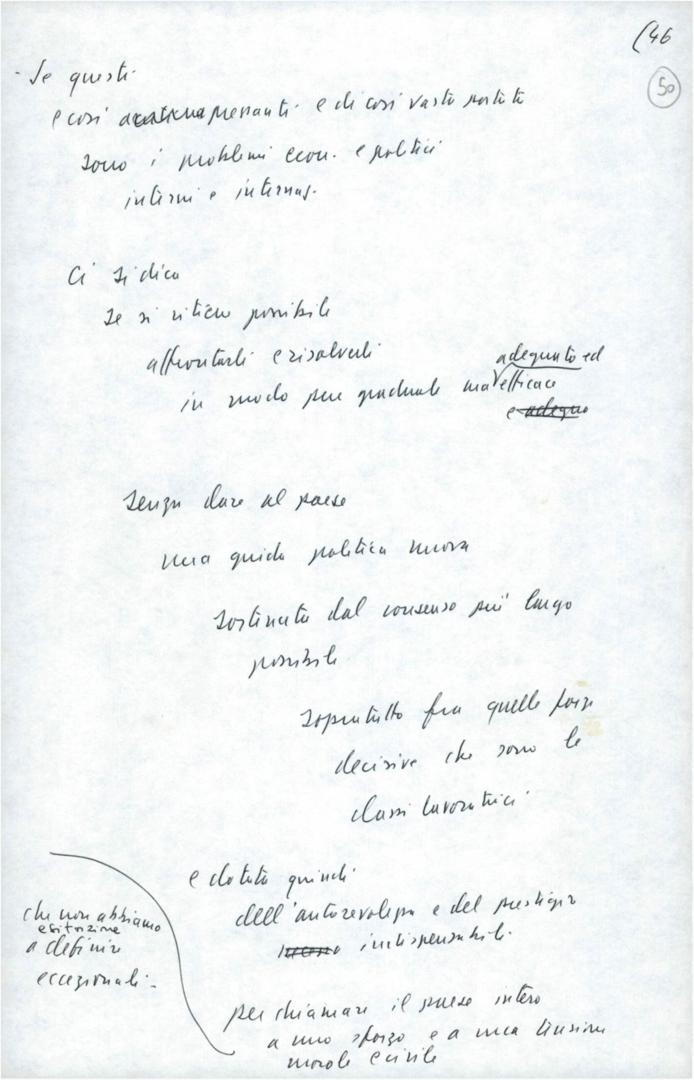 (46
50
- Se questi
e così pressanti e di così vasta portata
sono i problemi econ. e politici
interni e internaz.
Ci si dica
se si ritiene possibile
affrontarli e risolverli
in modo pur graduale ma adeguato ed efficace
e adegua
senza dare al paese
una guida politica nuova
sostenuta dal consenso più largo
possibile
soprattutto fra quelle forze
decisive che sono le
classi lavoratrici
e dotata quindi
dell'autorevolezza e del prestigio
indispensabili
per chiamare il paese intero
a uno sforzo e a una tensione
morale e civile
che non abbiamo
esitazione
a definire
eccezionali -